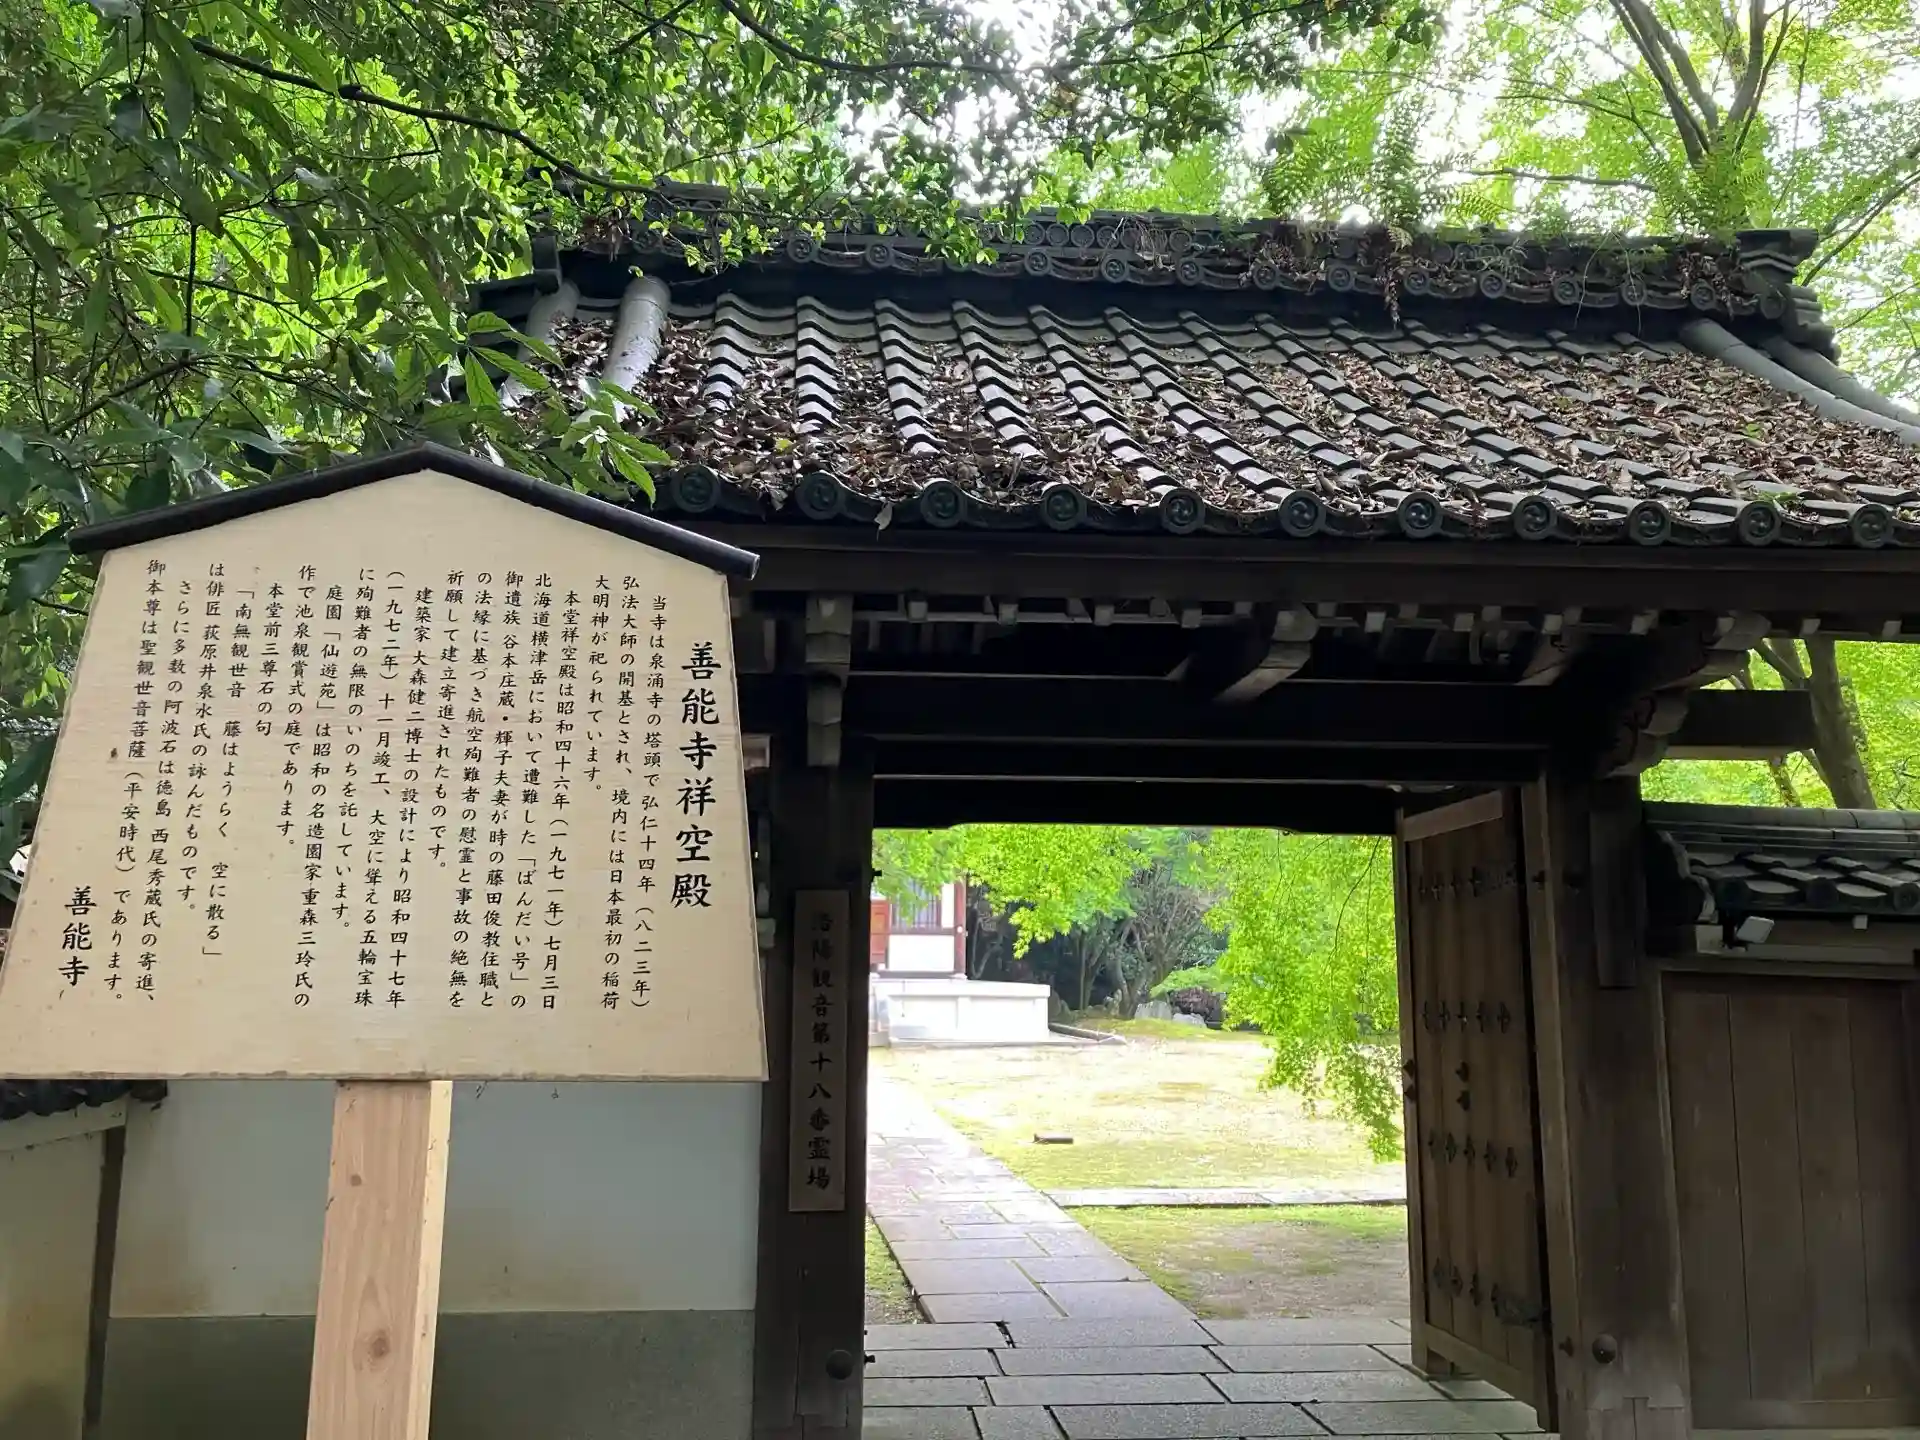 善能寺祥空殿
当寺は泉涌寺の塔頭で弘仁十四年（八二三年）
弘法大師の開基とされ、境内には日本最初の稲荷
大明神が祀られています。
本堂祥空殿は昭和四十六年（一九七一年）七月三日
北海道横津岳において遭難した「ばんだい号」の
御遺族 谷本庄蔵・輝子夫妻が時の藤田俊教住職と
の法縁に基づき航空殉難者の慰霊と事故の絶無を
祈願して建立寄進されたものです。
建築家 大森健二博士の設計により昭和四十七年
（一九七二年）十一月竣工、大空に聳える五輪宝珠
に殉難者の無限のいのちを託しています。
庭園「仙遊苑」は昭和の名造園家重森三玲氏の
作で池泉観賞式の庭であります。
本堂前三尊石の句
「南無観世音 藤はようらく 空に散る」
は俳匠 荻原井泉水氏の詠んだものです。
さらに多数の阿波石は徳島 西尾秀蔵氏の寄進、
御本尊は聖観世音菩薩（平安時代）であります。
善能寺
洛陽観音第十八番霊場